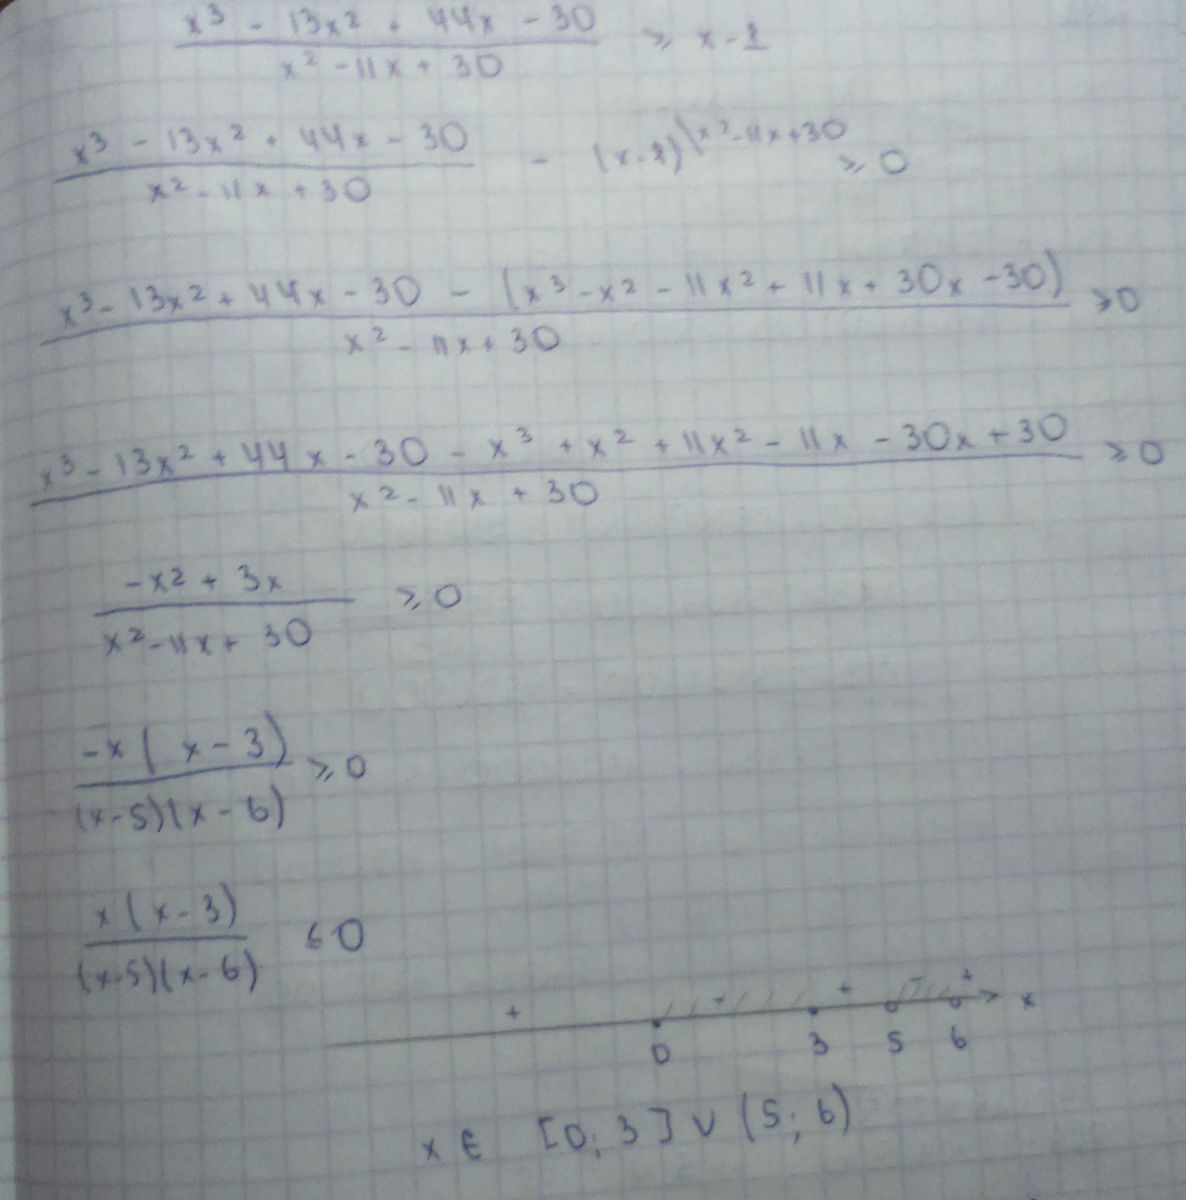 x³ - 13x² + 44x - 30 / x² - 11x + 30 ≥ x - 1
x³ - 13x² + 44x - 30 / x² - 11x + 30 - (x - 1) \x² - 11x + 30 ≥ 0
x³ - 13x² + 44x - 30 - (x³ - x² - 11x² + 11x + 30x - 30) / x² - 11x + 30 ≥ 0
x³ - 13x² + 44x - 30 - x³ + x² + 11x² - 11x - 30x + 30 / x² - 11x + 30 ≥ 0
-x² + 3x / x² - 11x + 30 ≥ 0
-x(x - 3) / (x - 5)(x - 6) ≥ 0
x(x - 3) / (x - 5)(x - 6) ≤ 0
+ - + - + x
0 3 5 6
x ∈ [0; 3] ∪ (5; 6)